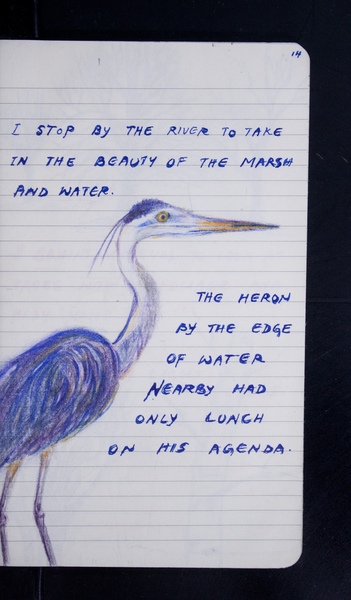 14
I STOP BY THE RIVER TO TAKE
IN THE BEAUTY OF THE MARSH
AND WATER.
THE HERON
BY THE EDGE
OF WATER
NEARBY HAD
ONLY LUNCH
ON HIS AGENDA.